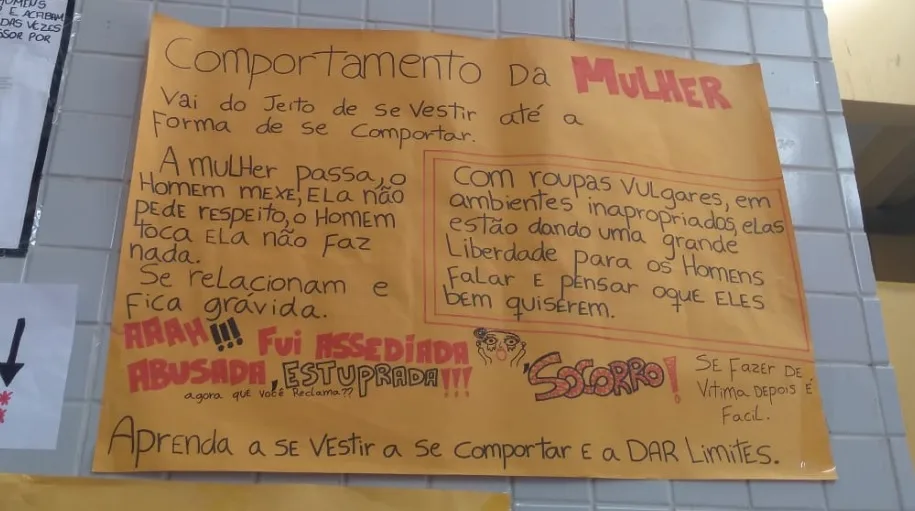 E ACABAM
DAS VEZES
SSOR POR
Comportamento Da MULHER
Vai do Jeito de se Vestir até a
Forma de se Comportar.
A mulHer passa, o
Homem mexe, ELa não
pede respeito, o Homem
toca ELa não Faz
nada.
Se relacionam e
Fica grávida.
Com roupas Vulgares, em
ambientes inapropriados, elas
estão dando uma grande
Liberdade para os Homens
Falar E pensar oque ELES
bem quiserem.
AAAH!!! Fui ASSEDIADA
ABUSADA, ESTUPRADA!!!
agora que você Reclama??
SOCORRO!
SE Fazer DE
Vitima DEPOis É
Facil.
Aprenda a SE VEStir a Se Comportar E a DAR Limites.